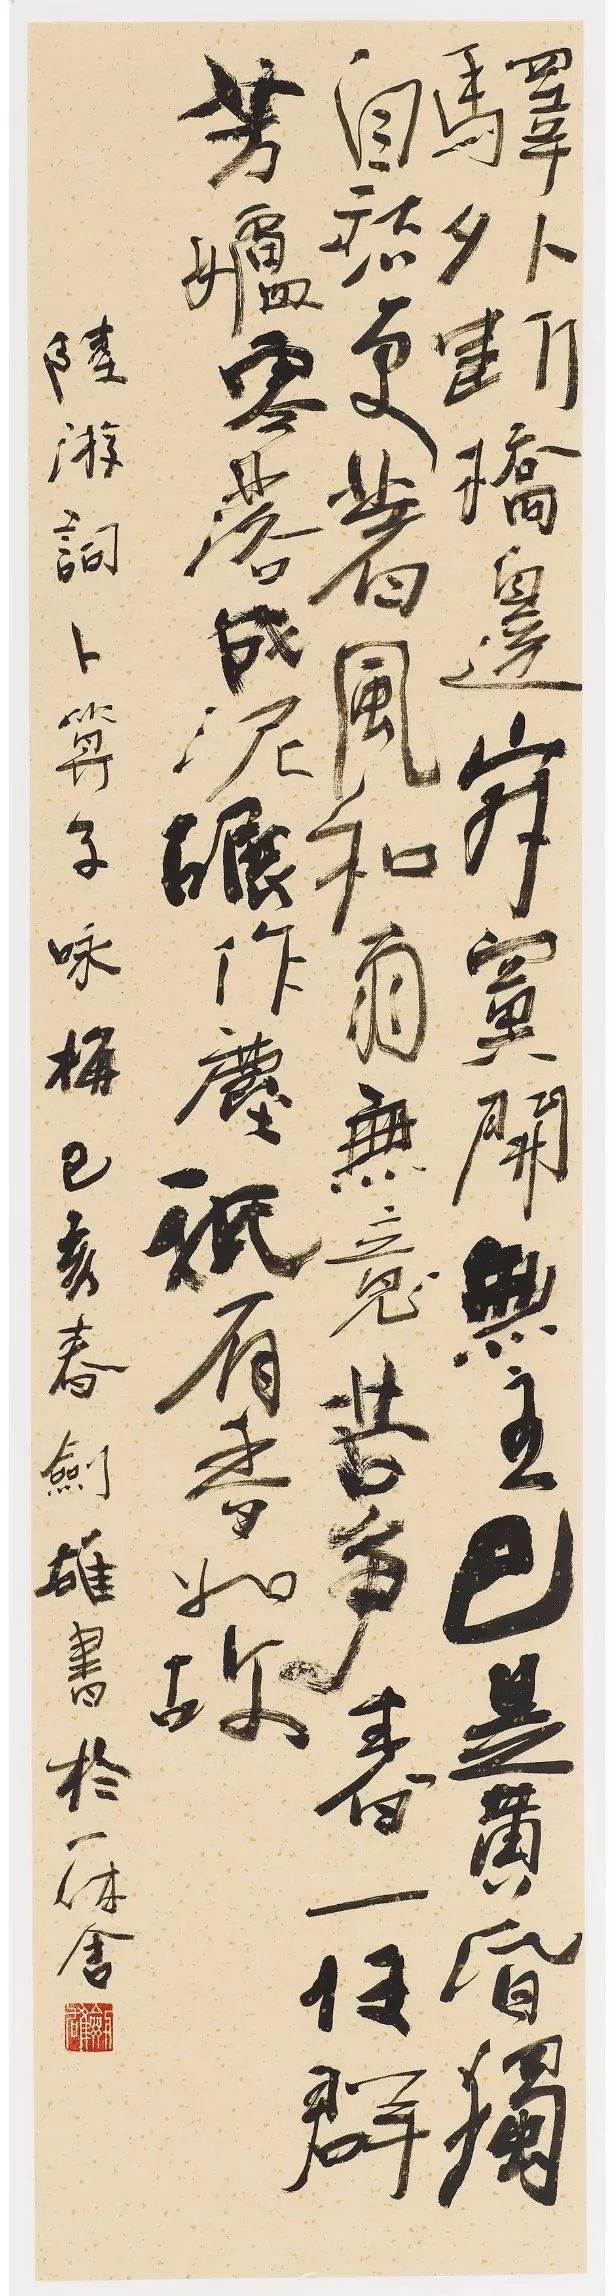 驛外斷橋邊寂寞開無主已是黃昏獨
自愁更著風和雨無意苦爭春一任群
芳妒零落成泥碾作塵祇有香如故
陸游詞卜算子咏梅己亥春劍雄書於一休舍
劍雄